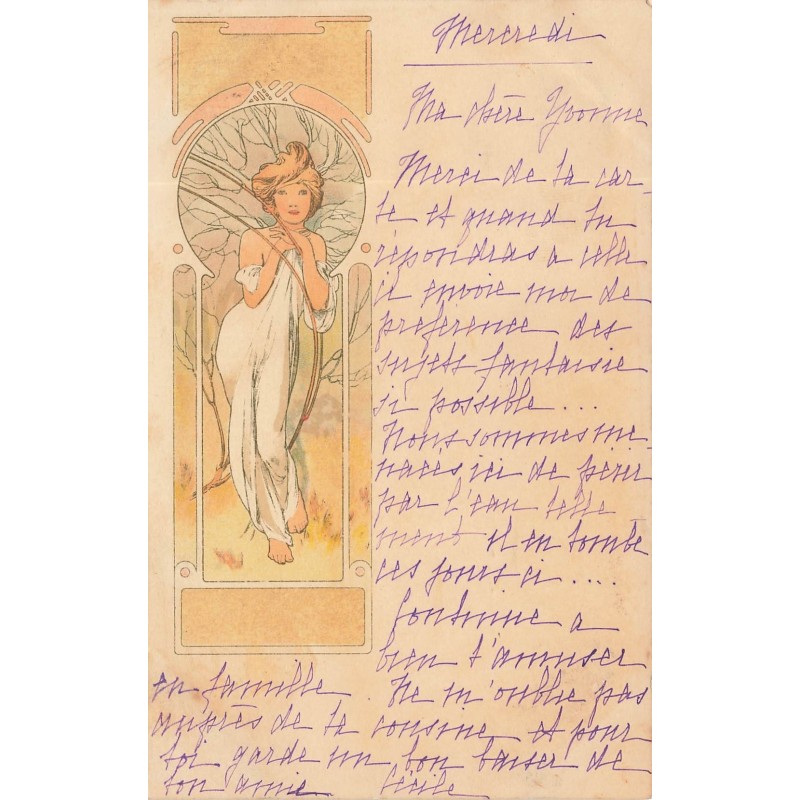 Mercredi
Ma chère Yvonne
Merci de ta car-
te et quand tu
repondras a celle
ci envoie moi de
preference des
sujets fantaisie
si possible ...
Nous sommes me-
nacés ici de périr
par l'eau telle
ment il en tombe
ces jours ci ....
Continue a
bien t'amuser
en famille. Ne m'oublie pas
auprès de ta cousine et pour
toi garde un bon baiser de
ton amie Cécile